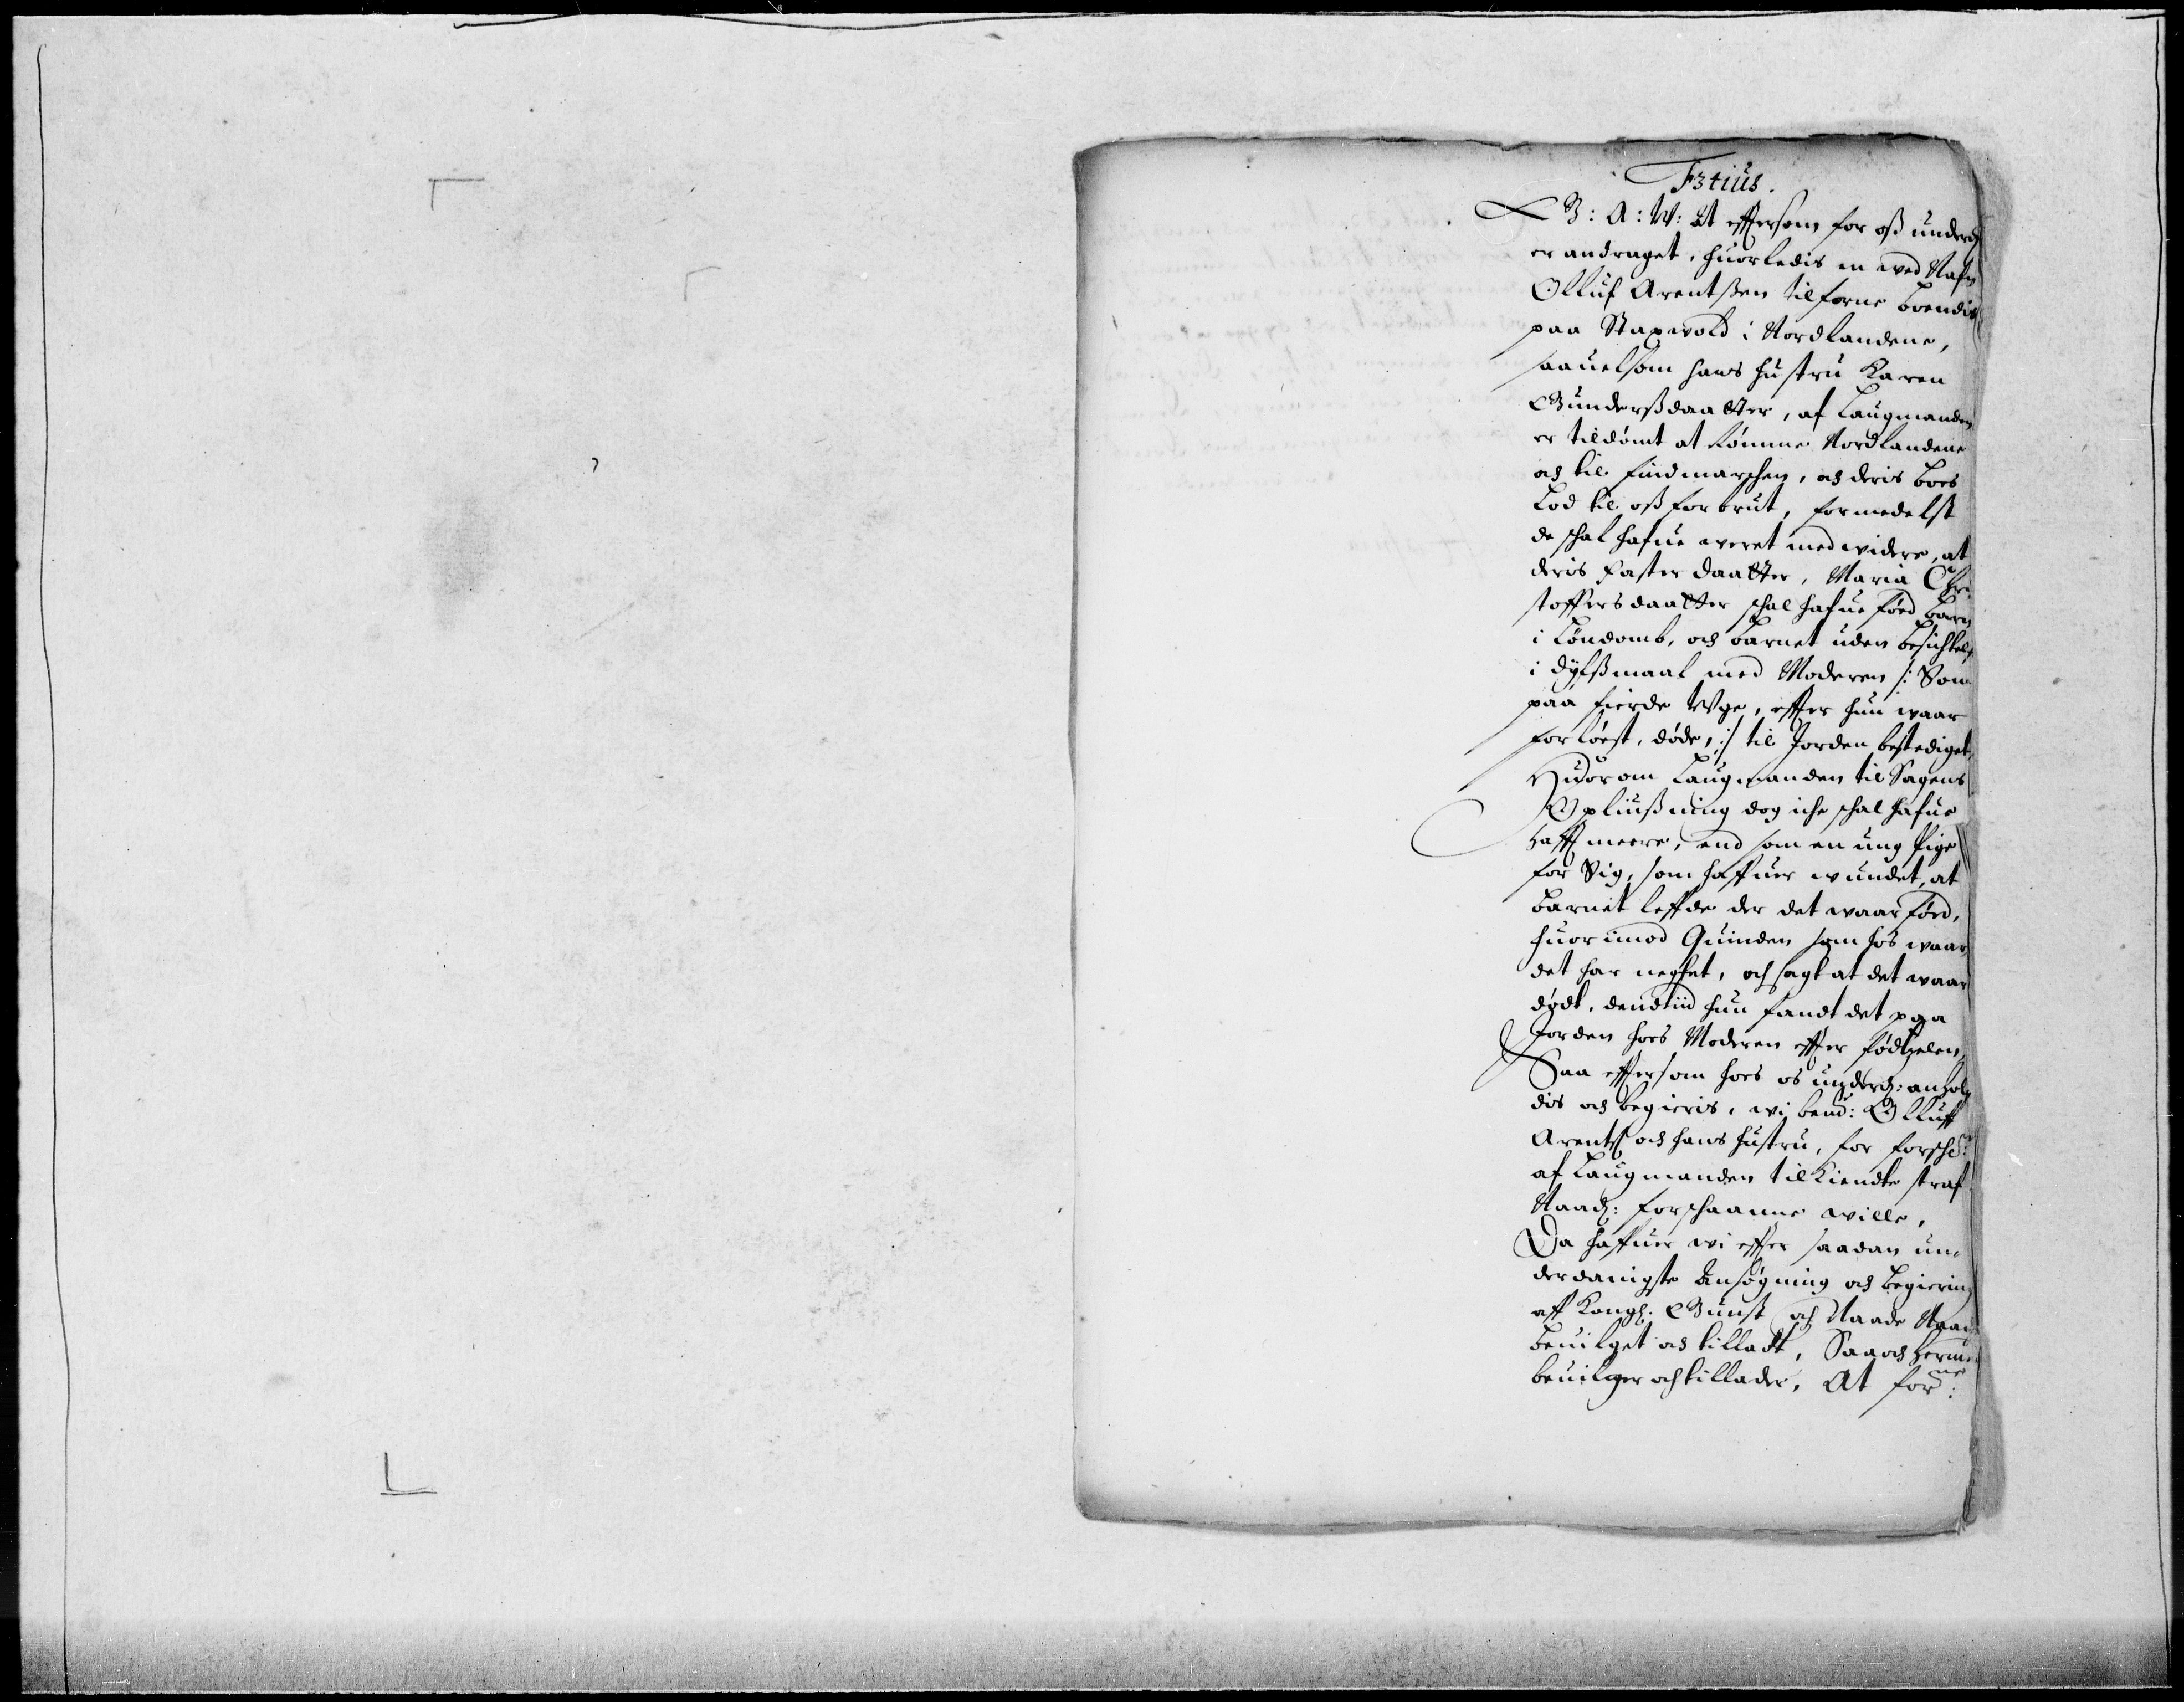 F3tius.
G: A: W: At effterssom for oß underd
er andraget, huorledis en wed Nafn
Olluf Arentßen tilforne boendis
paa Stapwold i Nordlandene,
saauelsom hans hustru Karen
Gunderßdaatter, af Laugmanden
er tildömt at römme Nordlandene
och til findmarchen, och deris boes
Lod til oß forbrut, formedelst
de schal hafue weret medwidere, at
deris Saster daatter, Maria Chri¬
stoffersdaatter schal hafue föed barn
i Löndomb, och barnet uden besichtelse
i dyelßmaal med Moderen /: Som
paa fierde Wge, effter hun waar
forlöest, döde, :/ til Jorden bestediget,
Huorom Laugmanden til Sagens
Opliußning dog iche schal hafue
hafft meere, end som en ung Pige
for Sig, som haffuer wundet, at
barnet leffde der det waar föed,
huorimod Quinden som hos waar
det har neghtet, och sagt at det waar
dödt, dendtiid hun fandt det paa
Jorden hoes Moderen effter födtzelen,
Saa effterssom hoes os underd: anhol¬
dis och begieris, wi bemte: Olluff
Arentß och hans hustru, for forschne:
af Laugmanden tilkiendte straf
Naad: forschaanne wille,
Da haffuer wi effter saadan un¬
derdanigste Ansögning och begiering
aff Kongl. Gunst och Naade Naad
beuilget och tilladt, Saa och hermed
beuilger och tillader, At forne: